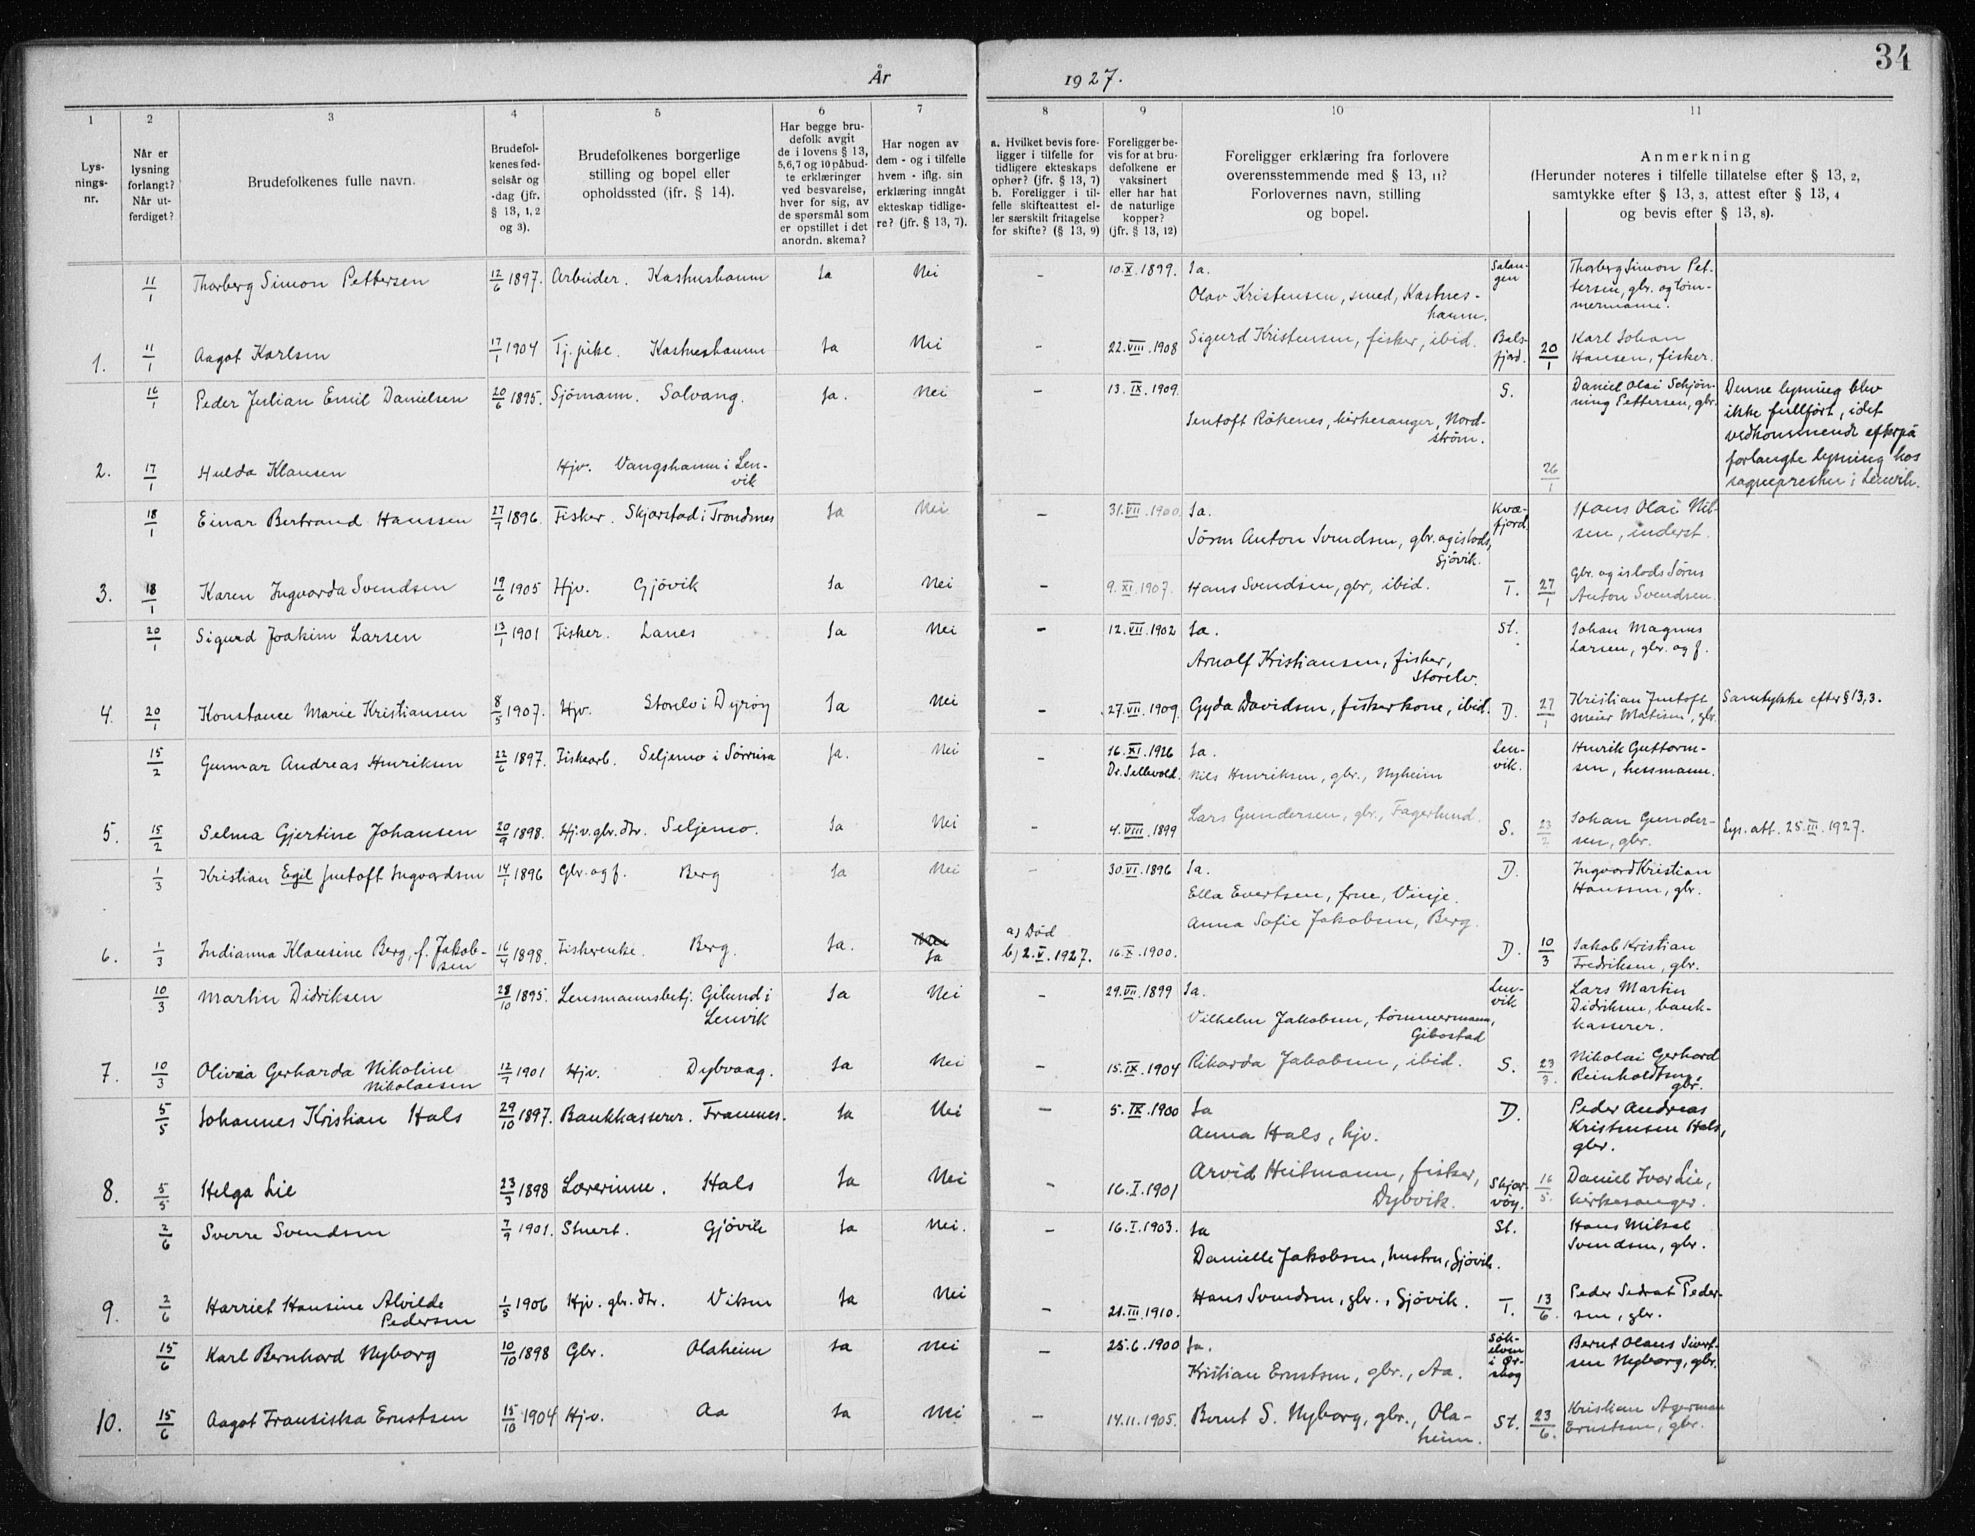 34
År 1927.
1
2
3
4
5
6
7
8
9
10
11
Lys-
nings-
nr.
Når er
lysning
forlangt?
Når ut-
ferdiget?
Brudefolkenes fulle navn.
Brudefol-
kenes fød-
selsår og
-dag (jfr.
§ 13, 1, 2
og 3).
Brudefolkenes borgerlige
stilling og bopel eller
opholdssted (jfr. § 14).
Har begge bru-
defolk avgit
de i lovens § 13,
5,6,7 og 10 påbud-
te erklæringer
ved besvarelse,
hver for sig, av
de spørsmål som
er opstillet i det
anordn. skema?
Har nogen av
dem - og i tilfelle
hvem - iflg. sin
erklæring inngått
ekteskap tidlige-
re? (jfr. § 13, 7).
a. Hvilket bevis fore-
ligger i tilfelle for
tidligere ekteskaps
ophør? (jfr. § 13, 7)
b. Foreligger i til-
felle skifteattest el-
ler særskilt fritagelse
for skifte? (§ 13, 9)
Foreligger be-
vis for at bru-
defolkene er
vaksinert
eller har hat
de naturlige
kopper?
(jfr. § 13, 12)
Foreligger erklæring fra forlovere
overensstemmende med § 13, 11?
Forlovernes navn, stilling
og bopel.
Anmerkning
(Herunder noteres i tilfelle tillatelse efter § 13, 2,
samtykke efter § 13, 3, attest efter § 13, 4
og bevis efter § 13, 8).
11/1 Thorberg Simon Pettersen 12/6 1897. Arbeider. Kastneshamn Ja Nei — 10.X.1899. Ja.
Olav Kristensen, smed, Kastnes-
hamn.
Salan-
gen
Thorberg Simon Pet-
tersen, gbr. og tøm-
mermann.
1. 11/1 Aagot Karlsen 17/1 1904 Tj. pike. Kastneshamn Ja Nei — 22.VIII.1908 Sigurd Kristensen, fisker, ibid.
Bals-
fjord.
20/1
Karl Johan
Hansen, fisker.
16/1 Peder Julian Emil Danielsen 20/6 1895. Sjömann. Solvang. Ja. Nei — 13.IX.1909.
Jentoft Råkenes, kirkesanger, Nord-
strøm.
S.
Daniel Olai Schjøn-
ning Pettersen, gbr.
Denne lysning blev
ikke fullført, idet
vedkommende efterpå
forlangte lysning hos
sogneprester i Lenvik.
2. 17/1 Hulda Klausen Hjv. Vangshamn i Len-
vik
26/1
18/1 Einar Bertrand Hanssen 27/1 1896. Fisker. Skjærstad i Trondenes Ja Nei — 31.VII.1900. Ja.
Sörn Anton Svendsen, gbr. og islods,
Gjövik.
Kvæ-
fjord.
Hans Olai Nil-
sen, inderst.
3. 18/1 Karen Ingvarda Svendsen 19/6 1905 Hjv. Gjövik Ja Nei — 9.XI.1907. Hans Svendsen, gbr, ibid. T. 27/1
Gbr. og islods Sörn
Anton Svendsen.
20/1 Sigurd Joakim Larsen 13/1 1901 Fisker. Lanes Ja Nei — 12.VII.1902 Ja.
Arnolf Kristiansen, fisker,
Storelv.
St.
Johan Magnus
Larsen, gbr. og f.
4. 20/1 Konstance Marie Kristiansen 8/5 1907. Hjv. Storelv i Dyröy Ja Nei — 27.VII.1909. Gyda Davidsen, fiskerkone, ibid. D. 27/1
Kristian Jentoft
meier Matisen, gbr.
Samtykke efter § 13, 3.
15/2 Gunnar Andreas Henriksen 22/6 1897. Fiskearb. Seljemo i Sørreisa Ja. Nei — 16.XI.1926
Dr. Sellevold.
Ja.
Nils Henriksen, gbr., Nyheim
Len-
vik.
Henrik Guttorm-
sen, hussmann.
5. 15/2 Selma Gjertine Johansen 20/9 1898. Hjv. gbr. dtr. Seljemo. Ja Nei — 4.VIII.1899 Lars Gundersen, gbr., Fagerlund. S. 23/2
Johan Gunder-
sen, gbr.
Lys. att. 25.III.1927.
1/3 Kristian Egil Jentoft Ingvardsen 14/1 1896 Gbr. og f. Berg Ja Nei — 30.VI.1896 Ja.
Ella Evertsen, frue, Vinje.
Anna Sofie Jakobsen, Berg.
D.
Ingvard Kristian
Hanssen, gbr.
6. 1/3 Indianna Klausine Berg, f. Jakob-
sen
16/4 1898. Fiskerenke. Berg. Ja. Nei
Ja
a) Död
b) 2.V.1927.
16.X.1900. D. 10/3
Jakob Kristian
Fredriksen, gbr.
10/3 Martin Didriksen 28/10 1895. Lensmannsbetj. Gilund i
Lenvik
Ja Nei — 29.VII.1899 Ja.
Vilhelm Jakobsen, tømmermann,
Gibostad
Len-
vik
Lars Martin
Didriksen, bank-
kasserer.
7. 10/3 Olivia Gerharda Nikoline
Nikolaisen
12/7 1901 Hjv. Dybvaag. Ja Nei — 15.IX.1904 Rikarda Jakobsen, ibid. S. 23/3.
Nikolai Gerhard
Reinholdtsen,
gbr.
5/5 Johannes Kristian Hals 29/10 1897. Bankkasserer. Framnes. Ja Nei — 5.IX.1900 Ja
Anna Hals, hjv.
D.
Peder Andreas
Kristensen Hals,
gbr.
8. 5/5 Helga Lie 23/3 1898 Lærerinne. Hals Ja Nei — 16.I.1901
Arvid Heitmann, fisker,
Dybvik.
Skjer-
vøy.
16/5.
Daniel Ivar Lie,
kirkesanger.
2/6 Sverre Svendsen 7/9 1901. Stuert. Gjövik Ja Nei. — 16.I.1903. Ja
Danielle Jakobsen, hustru, Gjövik.
St.
Hans Mikal
Svendsen, gbr.
9. 2/6 Harriet Hansine Alvilde
Pedersen
1/5 1906 Hjv. gbr. dtr. Viken Ja Nei — 21.III.1910. Hans Svendsen, gbr., Gjövik. T. 13/6
Peder Sedrat Peder-
sen, gbr.
15/6 Karl Bernhard Nyborg 10/10 1898 Gbr. Olaheim Ja Nei — 25.6.1900 Ja.
Kristian Ernstsen, gbr., Aa.
Søk-
elven
i Ør-
skog
Bernt Olaus Sivert-
sen Nyborg, gbr.
10. 15/6 Aagot Fransiska Ernstsen 15/10 1904 Hjv. Aa Ja Nei — 14.11.1905. Bernt S. Nyborg, gbr., Ola-
heim.
St. 23/6.
Kristian Agerman
Ernstsen, gbr.